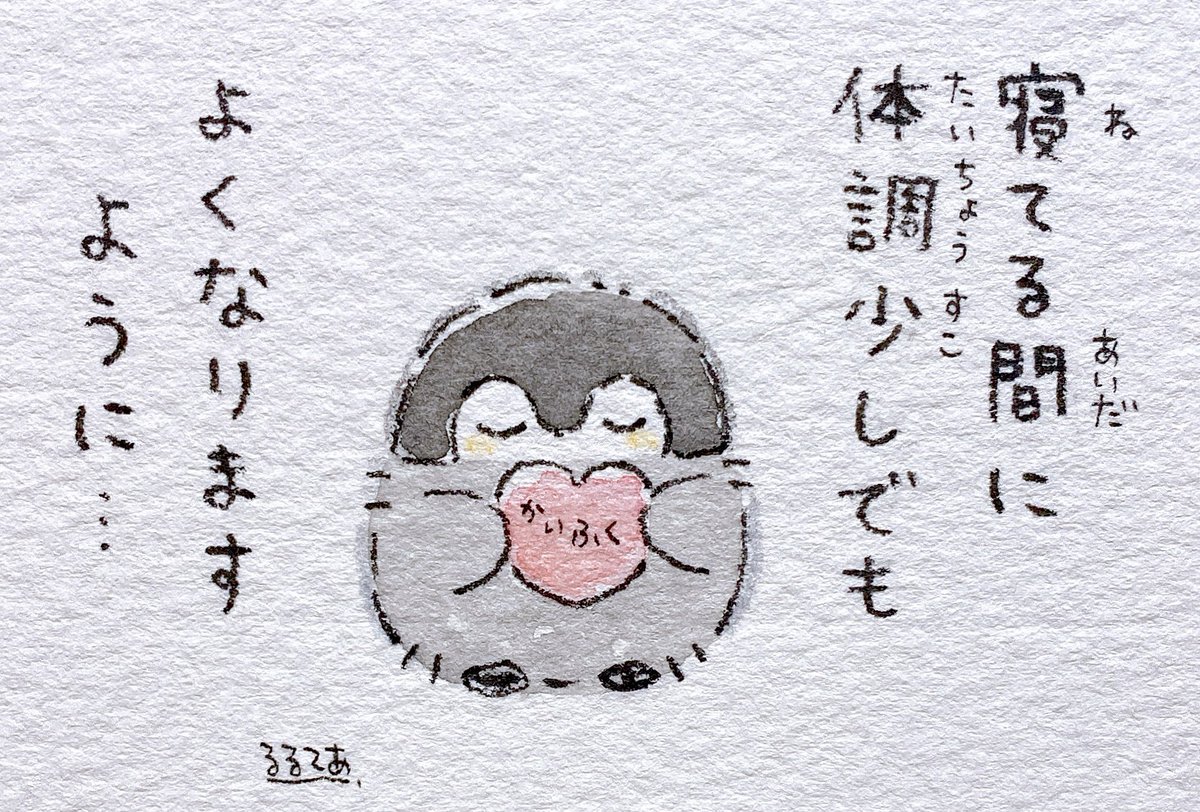 寝てる間に
ね
あいだ
体調少しでも
たいちょうすこ
よくなります
ように…
かいふく
るるてあ